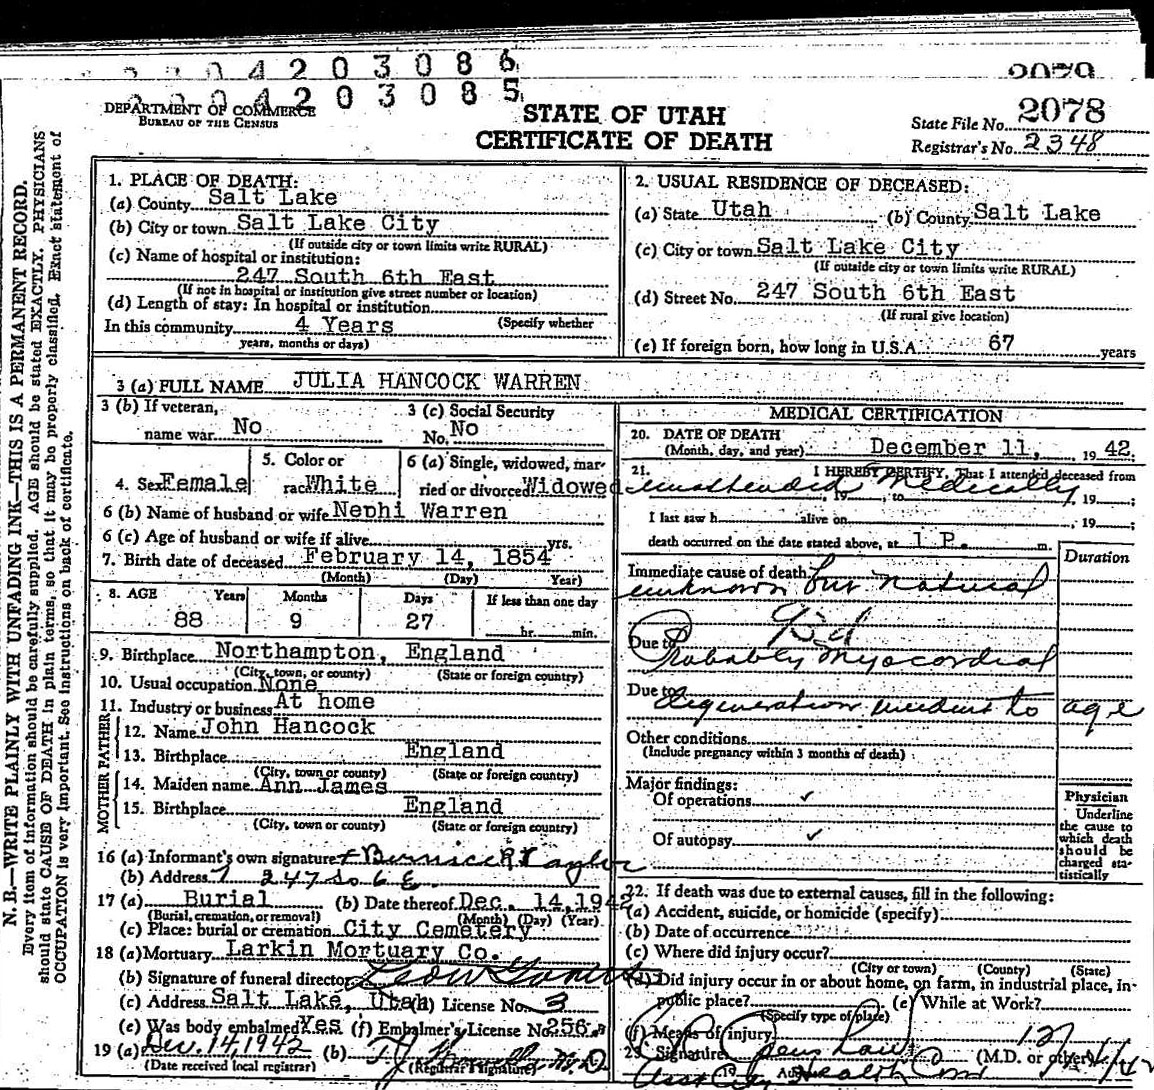 2 2 0 4 2 0 3 0 8 6
2079
2 2 0 4 2 0 3 0 8 5
DEPARTMENT OF COMMERCE
BUREAU OF THE CENSUS
STATE OF UTAH
CERTIFICATE OF DEATH
State File No. 2078
Registrar's No. 2348
N. B.—WRITE PLAINLY WITH UNFADING INK—THIS IS A PERMANENT RECORD.
Every item of information should be carefully supplied. AGE should be stated EXACTLY. PHYSICIANS
should state CAUSE OF DEATH in plain terms, so that it may be properly classified. Exact statement of
OCCUPATION is very important. See instructions on back of certificate.
1. PLACE OF DEATH:
(a) County Salt Lake
(b) City or town Salt Lake City
(If outside city or town limits write RURAL)
(c) Name of hospital or institution:
247 South 6th East
(If not in hospital or institution give street number or location)
(d) Length of stay: In hospital or institution
In this community 4 Years (Specify whether
years, months or days)
2. USUAL RESIDENCE OF DECEASED:
(a) State Utah (b) County Salt Lake
(c) City or town Salt Lake City
(If outside city or town limits write RURAL)
(d) Street No. 247 South 6th East
(If rural give location)
(e) If foreign born, how long in U.S.A. 67 years
3 (a) FULL NAME JULIA HANCOCK WARREN
3 (b) If veteran,
name war No
3 (c) Social Security
No. No
4. Sex Female
5. Color or
race White
6 (a) Single, widowed, mar-
ried or divorced Widowed
6 (b) Name of husband or wife Nephi Warren
6 (c) Age of husband or wife if alive yrs.
7. Birth date of deceased February 14, 1854
(Month) (Day) Year)
8. AGE Years Months Days If less than one day
88 9 27 hr. min.
9. Birthplace Northampton, England
(City, town, or county) (State or foreign country)
10. Usual occupation None
11. Industry or business At home
FATHER
12. Name John Hancock
13. Birthplace England
(City, town or county) (State or foreign country)
MOTHER
14. Maiden name Ann James
15. Birthplace England
(City, town or county) (State or foreign country)
16 (a) Informant's own signature Burnice R Taylor
(b) Address 247 So 6 E.
17 (a) Burial (b) Date thereof Dec. 14, 1942
(Burial, cremation, or removal) (Month) (Day) (Year)
(c) Place: burial or cremation City Cemetery
18 (a) Mortuary Larkin Mortuary Co.
(b) Signature of funeral director
(c) Address Salt Lake, Utah (d) License No. 3
(e) Was body embalmed Yes (f) Embalmer's License No. 256
19 (a) Dec. 14, 1942 (b)
(Date received local registrar) (Registrar's signature)
MEDICAL CERTIFICATION
20. DATE OF DEATH
(Month, day, and year) December 11, 19 42
21. I HEREBY CERTIFY, That I attended deceased from
unattended Medically 19 to 19 ;
I last saw h alive on , 19 ;
death occurred on the date stated above, at 1 P. m.
Duration
Immediate cause of death
unknown but natural
93d
Due to
Probably Myocordial
Due to
degeneration incident to age
Other conditions
(Include pregnancy within 3 months of death)
Major findings:
Of operations ✓
Of autopsy ✓
Physician
Underline
the cause to
which death
should be
charged sta-
tistically
22. If death was due to external causes, fill in the following:
(a) Accident, suicide, or homicide (specify)
(b) Date of occurrence
(c) Where did injury occur?
(City or town) (County) (State)
(d) Did injury occur in or about home, on farm, in industrial place, in
public place? (e) While at Work?
(Specify type of place)
(f) Means of injury
23. Signature (M.D. or other)